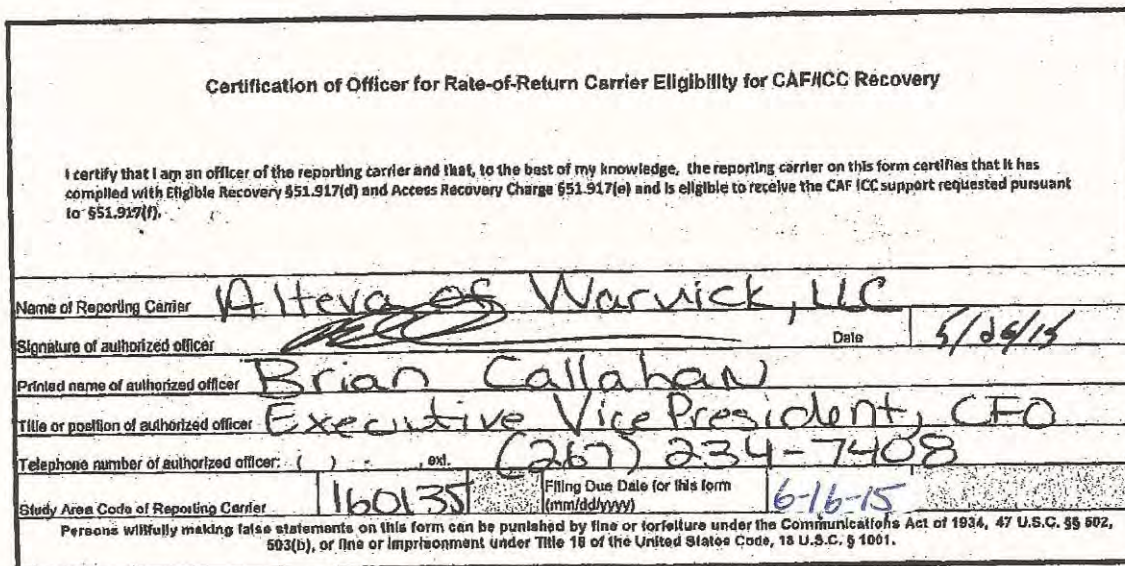 Certification of Officer for Rate-of-Return Carrier Eligibility for CAF/ICC Recovery
I certify that I am an officer of the reporting carrier and that, to the best of my knowledge, the reporting carrier on this form certifies that it has
complied with Eligible Recovery §51.917(d) and Access Recovery Charge §51.917(e) and is eligible to receive the CAF ICC support requested pursuant
to §51.917(f).
Name of Reporting Carrier Alteva of Warwick, LLC
Signature of authorized officer Date 5/26/15
Printed name of authorized officer Brian Callahan
Title or position of authorized officer Executive Vice President, CFO
Telephone number of authorized officer: ( ) - , ext. (267) 234-7408
Study Area Code of Reporting Carrier 160135 Filing Due Date for this form
(mm/dd/yyyy) 6-16-15
Persons willfully making false statements on this form can be punished by fine or forfeiture under the Communications Act of 1934, 47 U.S.C. §§ 502,
503(b), or fine or imprisonment under Title 18 of the United States Code, 18 U.S.C. § 1001.